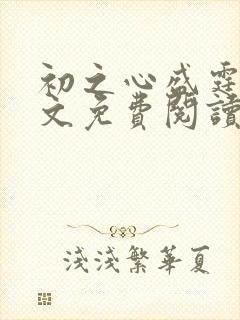 初之心盛霆
文免費閱讀
淺淺繁華夏